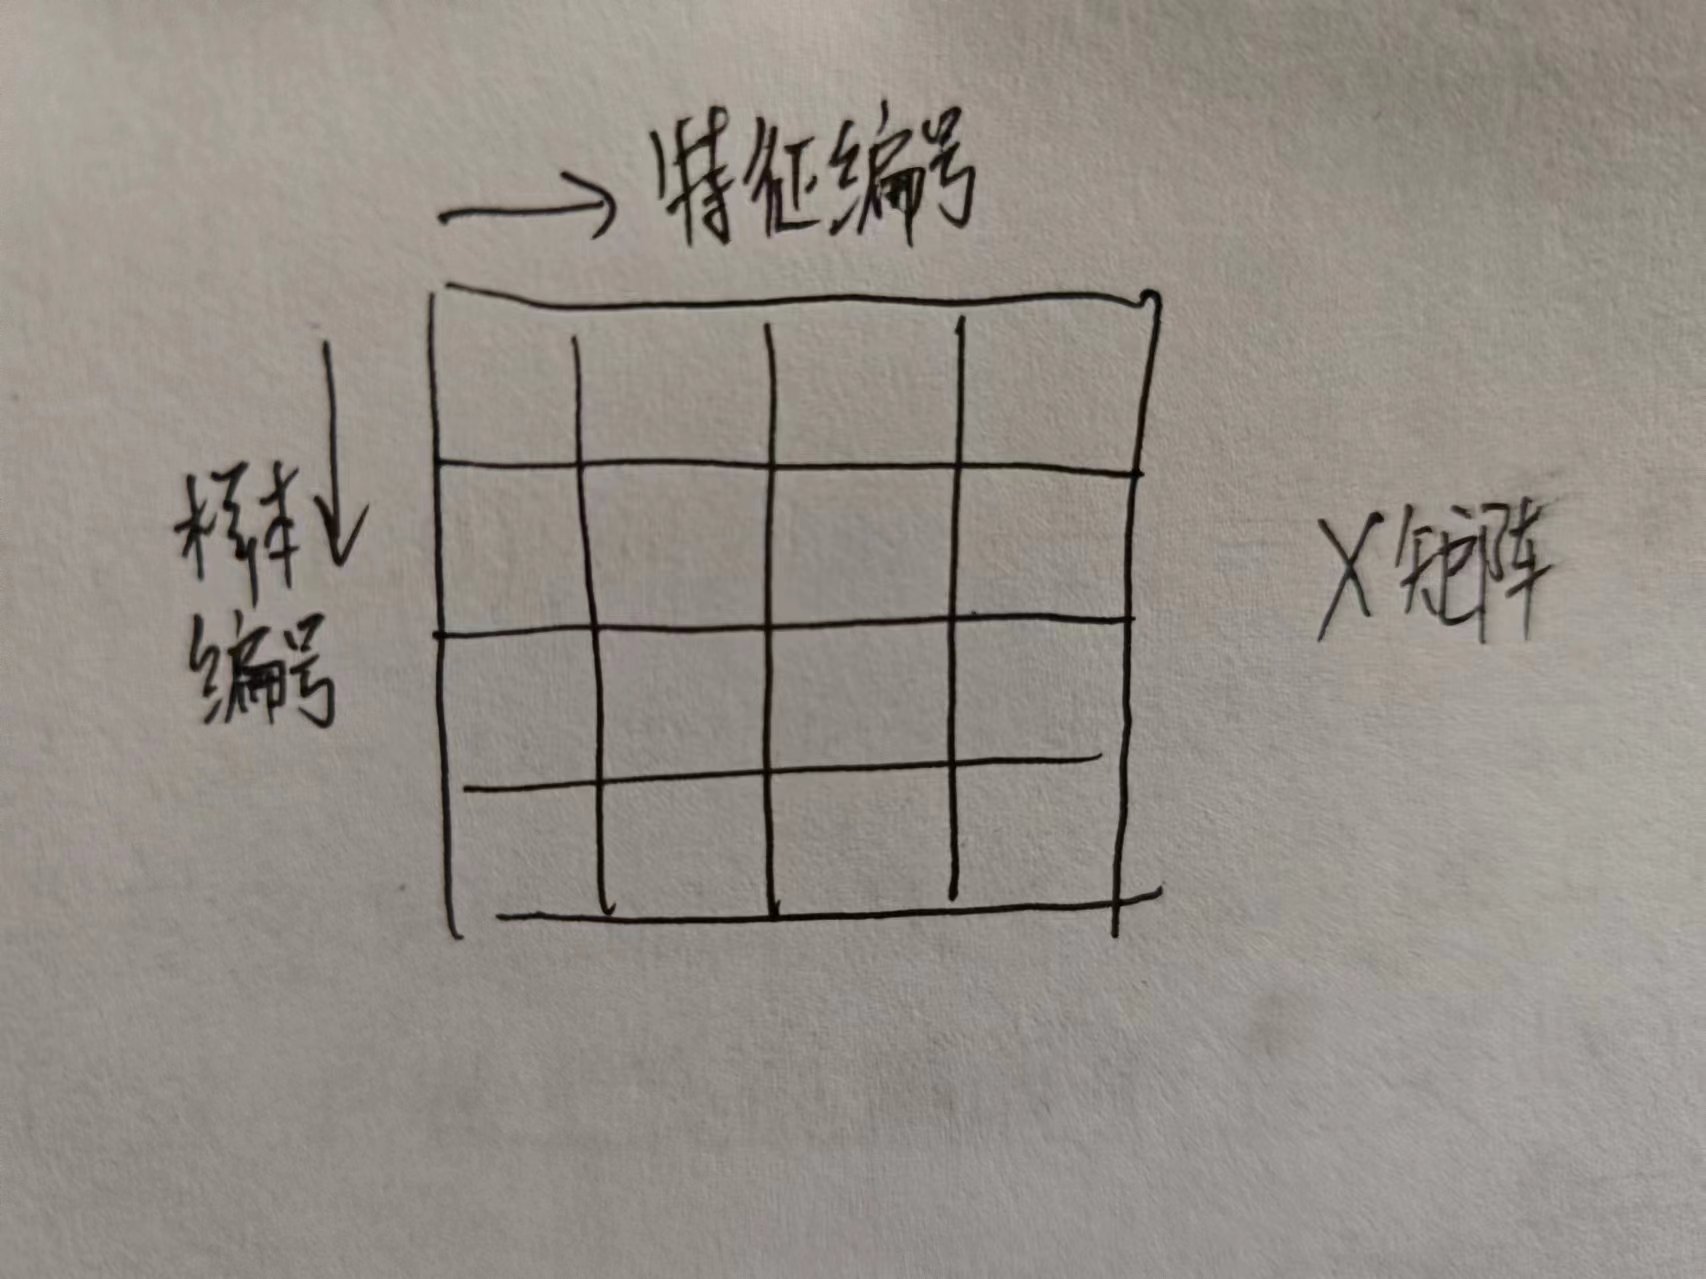 特征编号
样本
编号
X矩阵